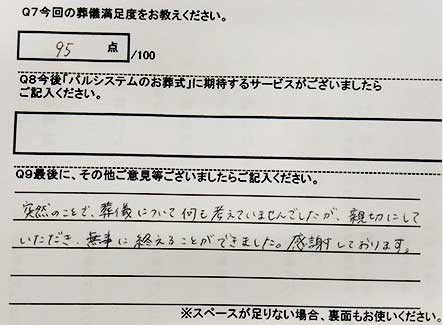 Q7今回の葬儀満足度をお教えください。
95 点 /100
Q8今後「パルシステムのお葬式」に期待するサービスがございましたら
ご記入ください。
Q9最後に、その他ご意見等ございましたらご記入ください。
突然のことで、葬儀について何も考えていませんでしたが、親切にして
いただき、無事に終えることができました。感謝しております。
※スペースが足りない場合、裏面もお使いください。